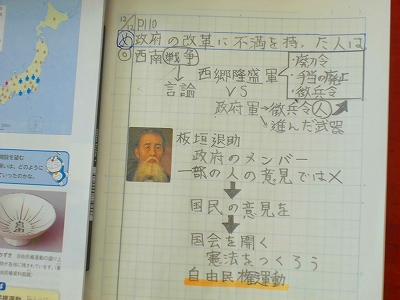 12/12 P110
め 政府の改革に不満を持った人は
◎西南戦争
・廃刀令
・手当の廃止
・徴兵令
↓ 西郷隆盛軍
言論 VS
政府軍→徴兵令(人)
→進んだ武器
板垣退助
政府のメンバー
一部の人の意見では×
↓
国民の意見を
↓
国会を開く
憲法をつくろう
自由民権運動